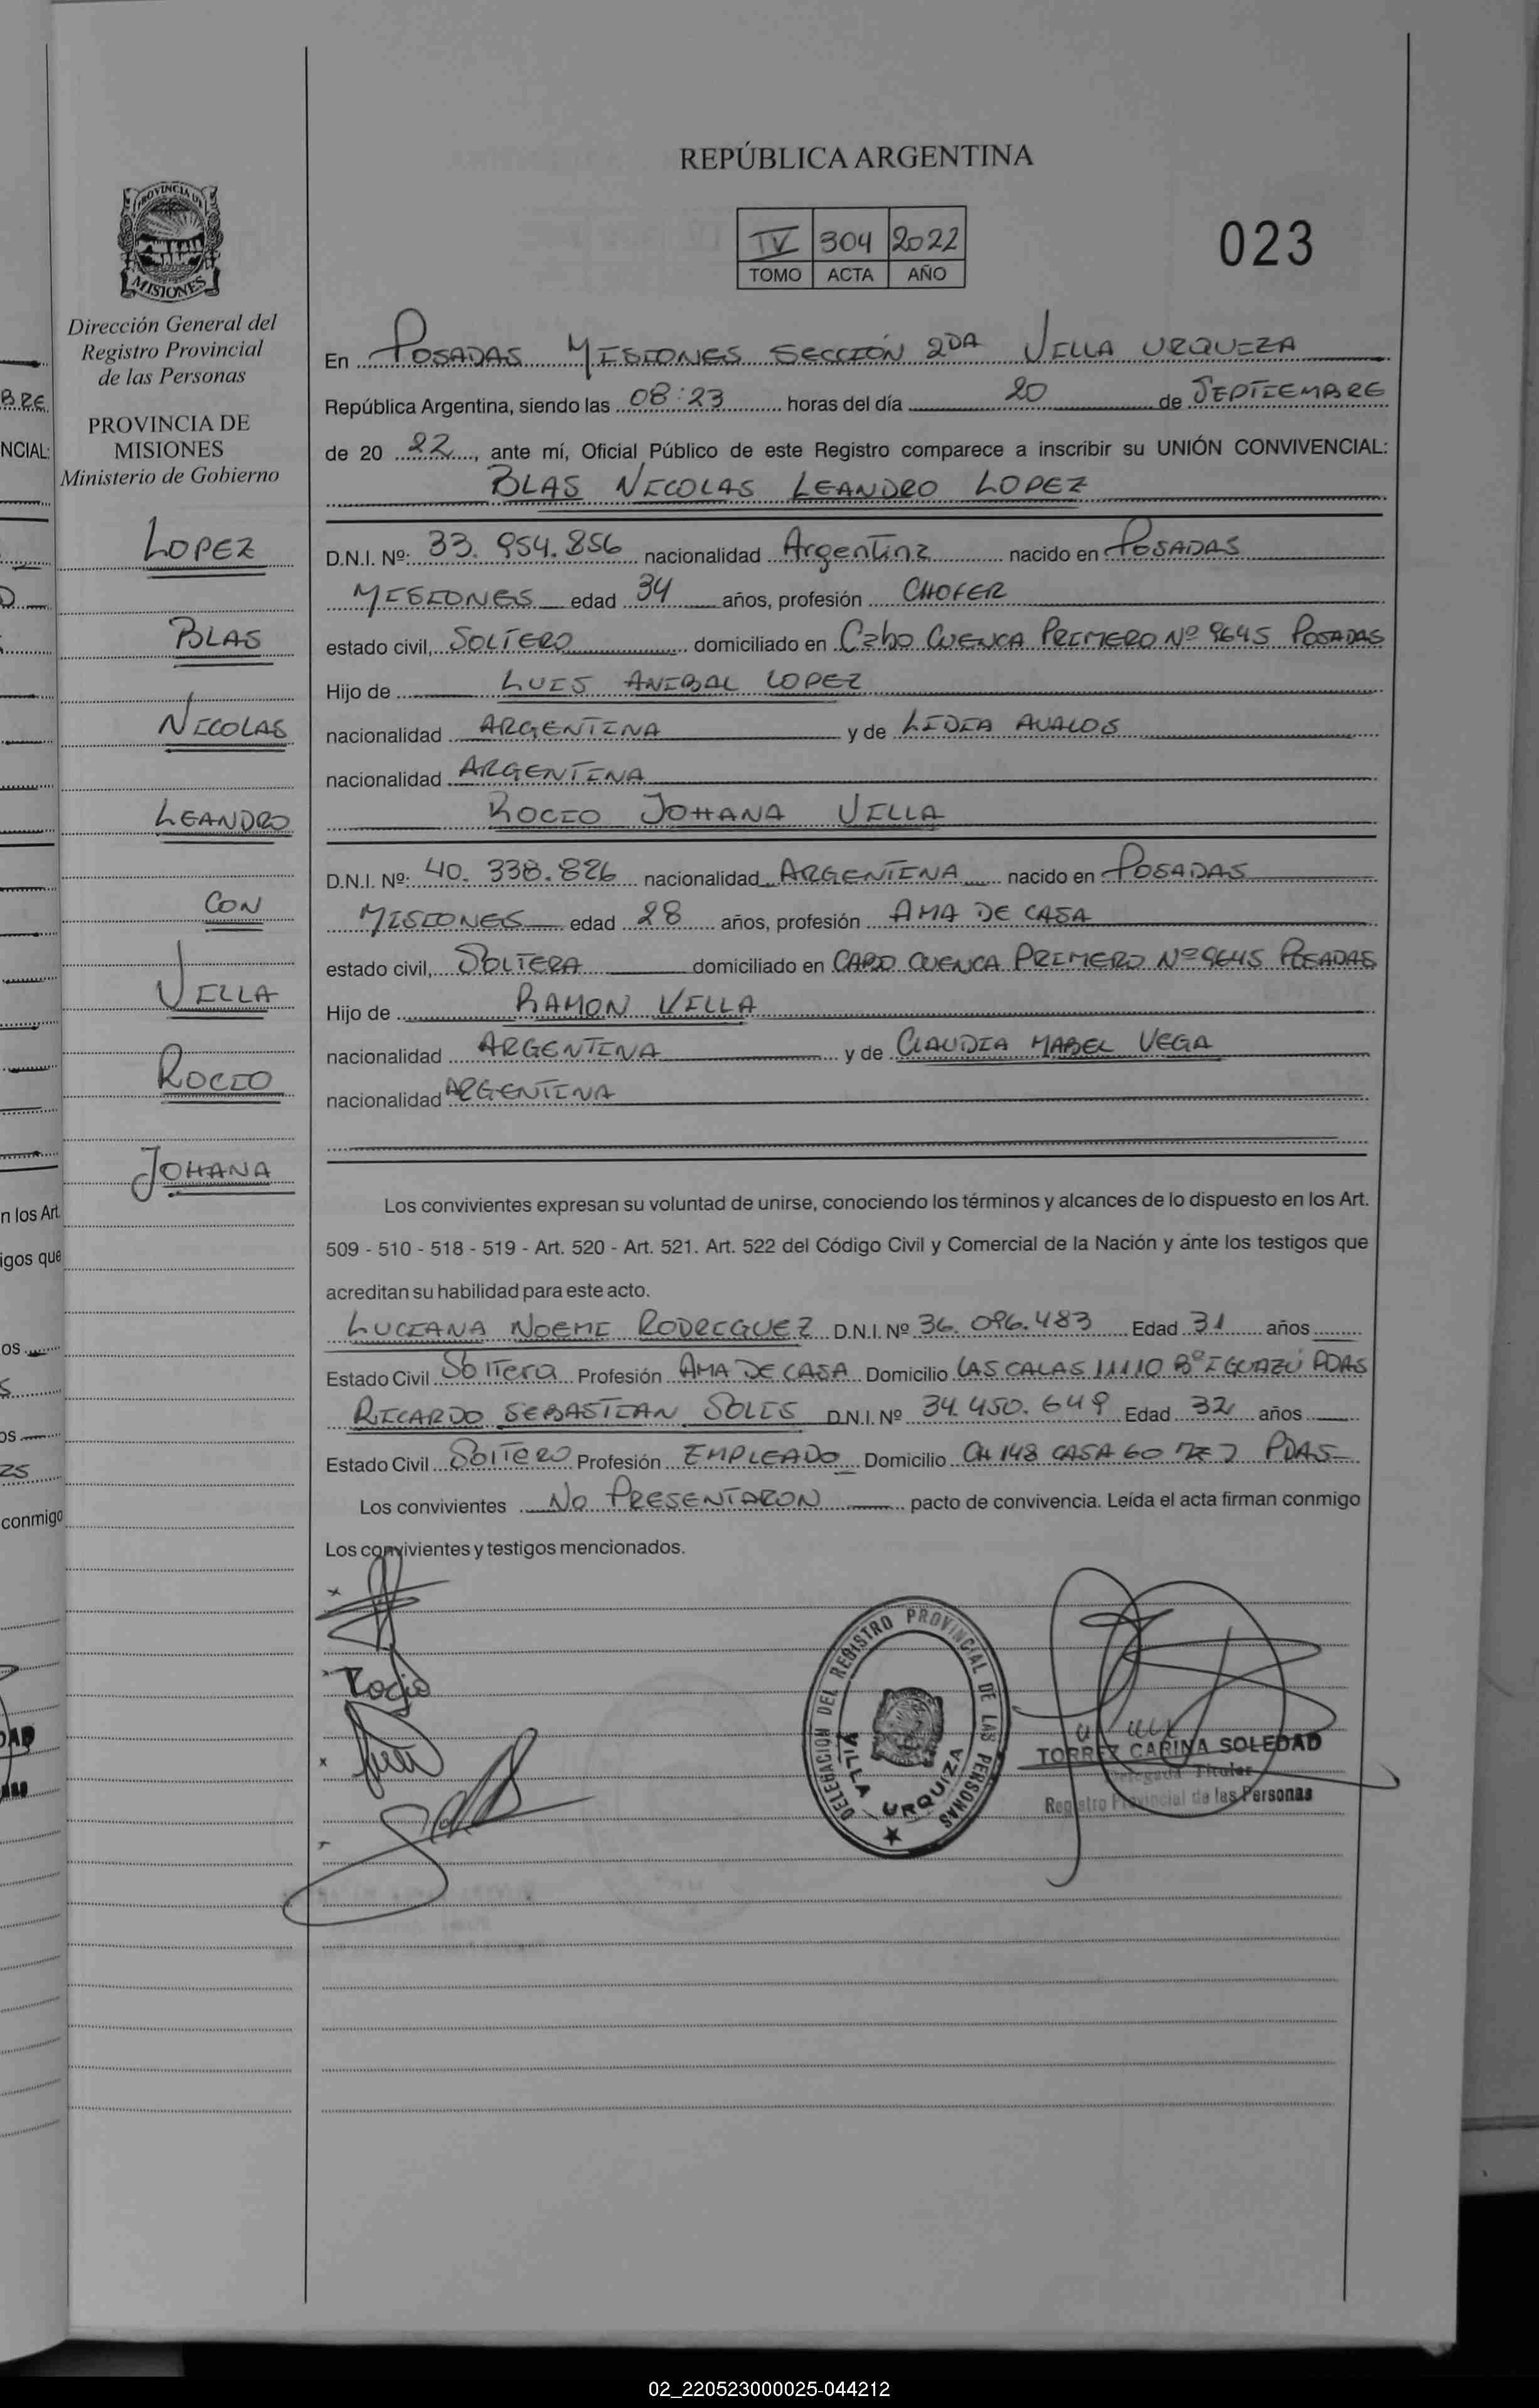 REPÚBLICA ARGENTINA
IV 304 2022
TOMO ACTA AÑO
023
PROVINCIA DE
MISIONES
Dirección General del
Registro Provincial
de las Personas
PROVINCIA DE
MISIONES
Ministerio de Gobierno
LOPEZ
BLAS
NICOLAS
LEANDRO
CON
VILLA
ROCIO
JOHANA
En POSADAS MISIONES SECCIÓN 2DA VILLA URQUIZA
República Argentina, siendo las 08:23 horas del día 20 de SEPTIEMBRE
de 20 22, ante mí, Oficial Público de este Registro comparece a inscribir su UNIÓN CONVIVENCIAL:
BLAS NICOLAS LEANDRO LOPEZ
D.N.I. Nº: 33.954.856 nacionalidad Argentina nacido en POSADAS
MISIONES edad 34 años, profesión CHOFER
estado civil, SOLTERO domiciliado en Cabo CUENCA PRIMERO Nº 9645 POSADAS
Hijo de LUIS ANIBAL LOPEZ
nacionalidad ARGENTINA y de LIDIA AVALOS
nacionalidad ARGENTINA
ROCIO JOHANA VILLA
D.N.I. Nº: 40.338.826 nacionalidad ARGENTINA nacido en POSADAS
MISIONES edad 28 años, profesión AMA DE CASA
estado civil, SOLTERA domiciliado en CABO CUENCA PRIMERO Nº 9645 POSADAS
Hijo de RAMON VILLA
nacionalidad ARGENTINA y de CLAUDIA MABEL VEGA
nacionalidad ARGENTINA
Los convivientes expresan su voluntad de unirse, conociendo los términos y alcances de lo dispuesto en los Art.
509 - 510 - 518 - 519 - Art. 520 - Art. 521. Art. 522 del Código Civil y Comercial de la Nación y ante los testigos que
acreditan su habilidad para este acto.
LUCIANA NOEMI RODRIGUEZ D.N.I. Nº 36.096.483 Edad 31 años
Estado Civil Soltera Profesión AMA DE CASA Domicilio LAS CALAS 11110 Bº IGUAZÚ PDAS
RICARDO SEBASTIAN SOLIS D.N.I. Nº 34.450.649 Edad 32 años
Estado Civil SOLTERO Profesión EMPLEADO Domicilio CH 148 CASA 60 PDAS
Los convivientes No PRESENTARON pacto de convivencia. Leída el acta firman conmigo
Los convivientes y testigos mencionados.
Rocio
DELEGACION DEL REGISTRO PROVINCIAL DE LAS PERSONAS
VILLA URQUIZA
TORREZ CARINA SOLEDAD
Delegada Titular
Registro Provincial de las Personas
BRE
NCIAL:
n los Art.
igos que
os
conmigo
02_220523000025-044212